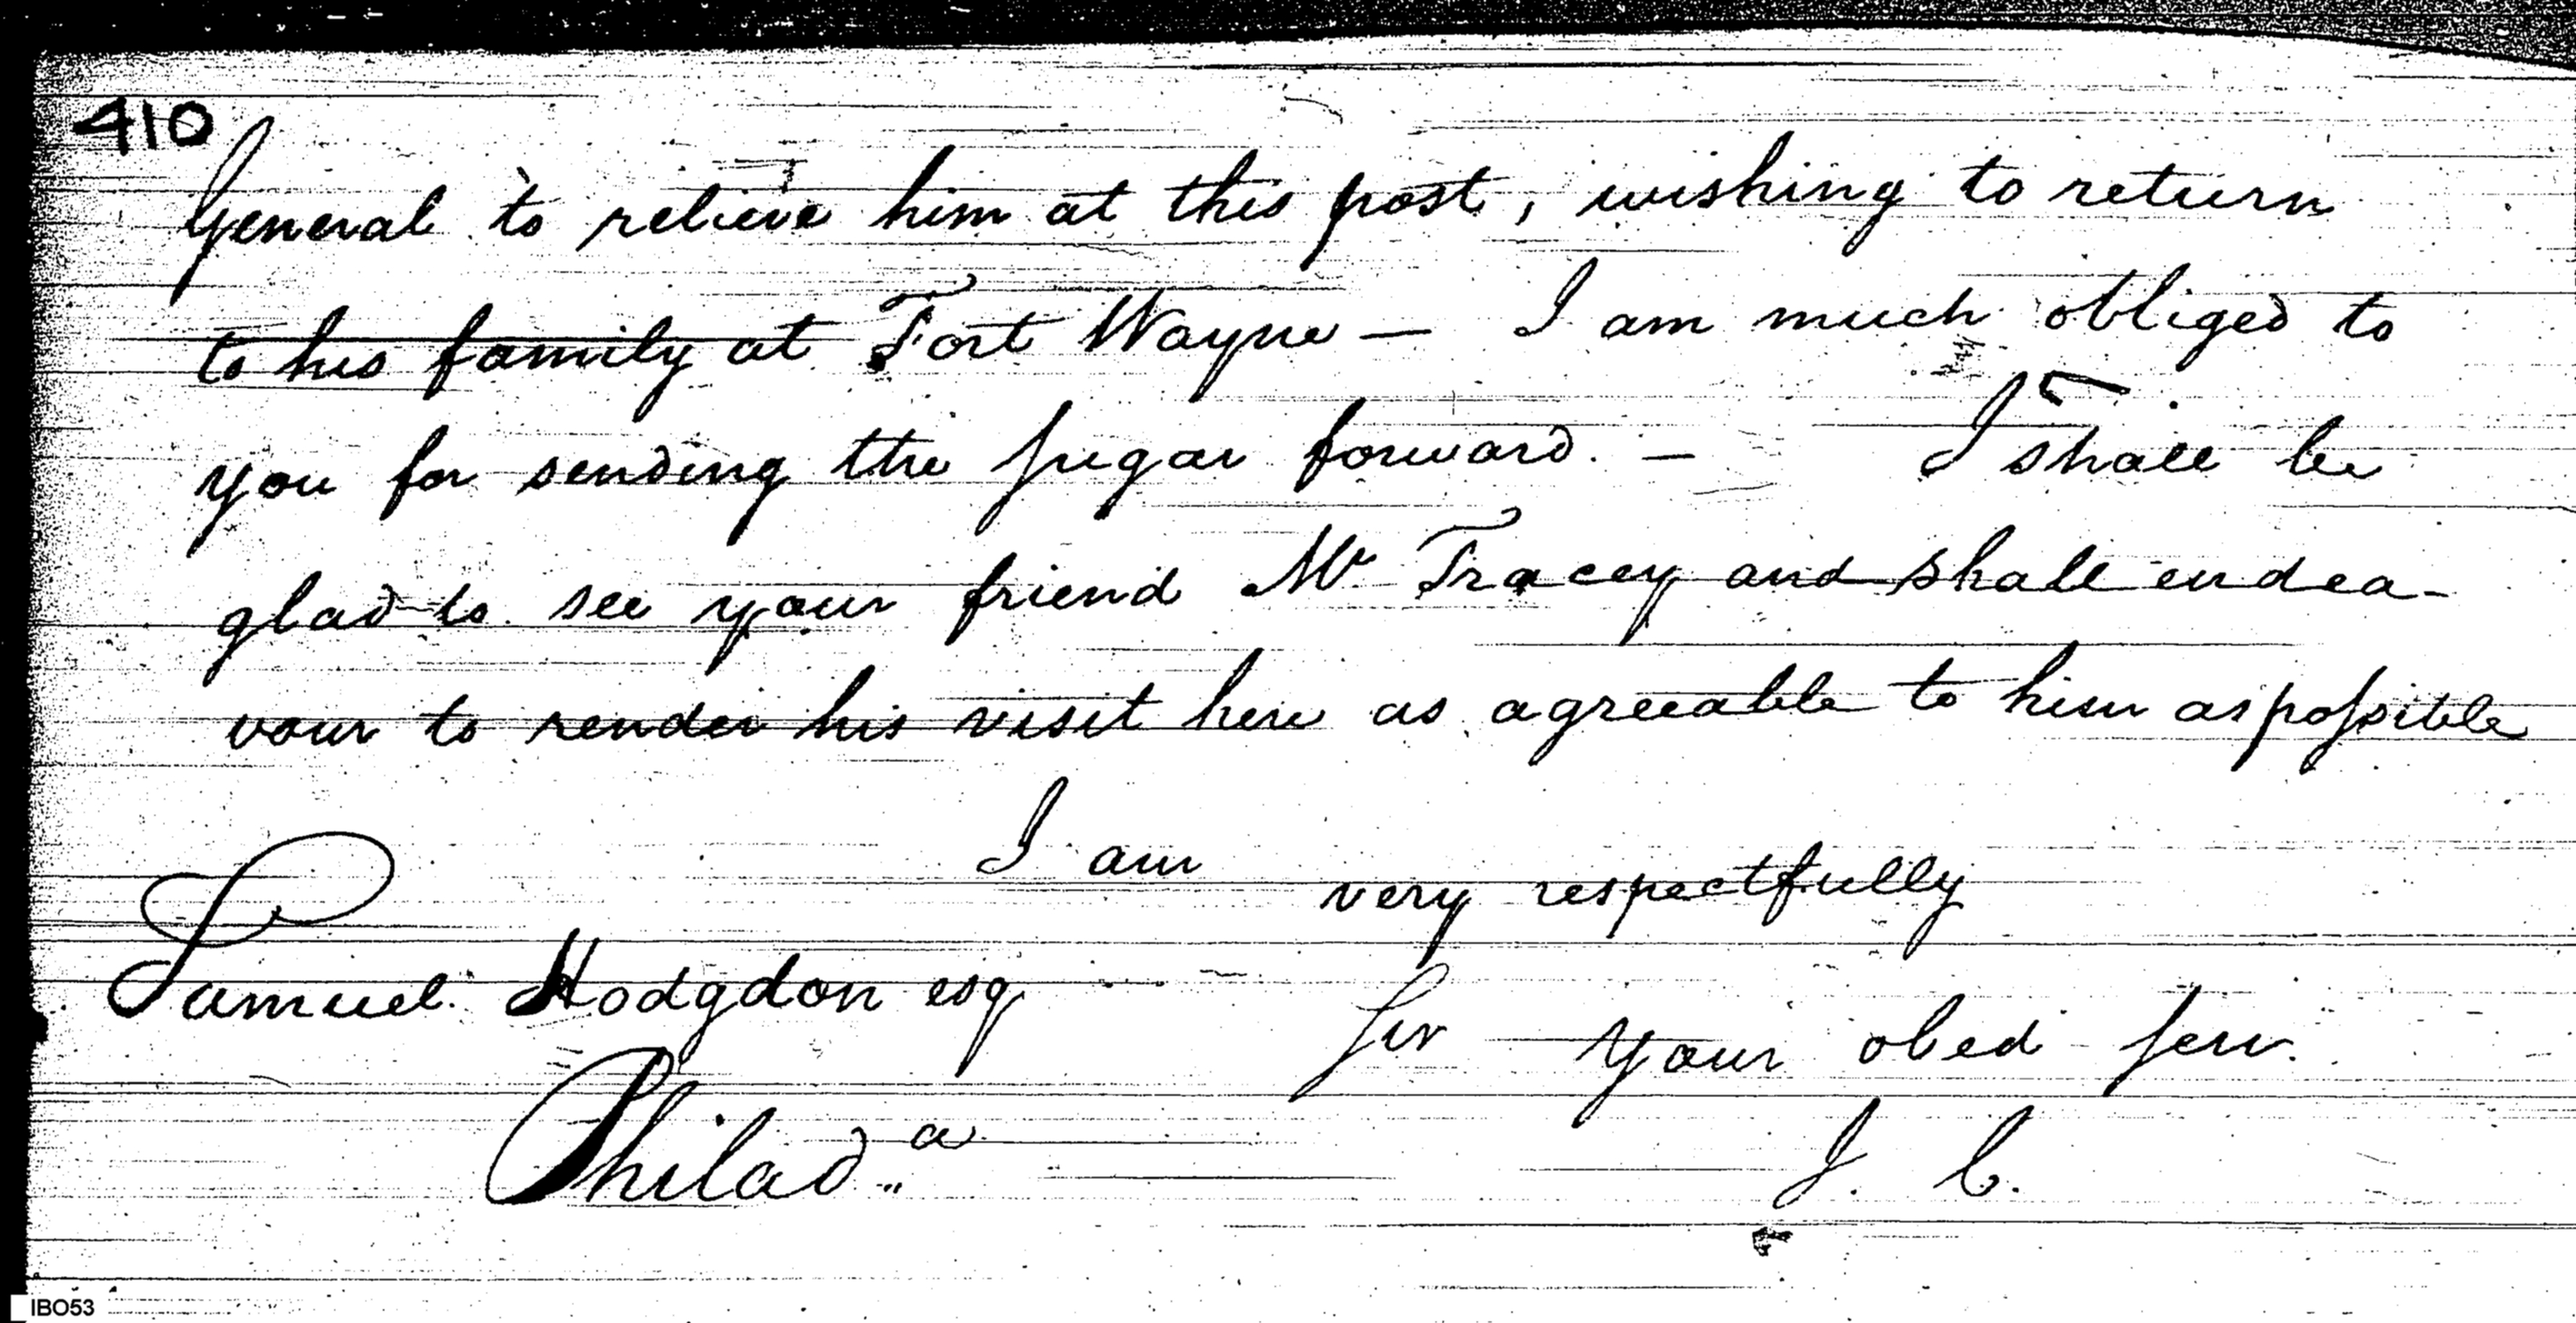 410
General to relieve him at this post, wishing to return
to his family at Fort Wayne — I am much obliged to
you for sending the sugar forward. — I shall be
glad to see your friend Mr Tracey and shall endea-
vour to render his visit here as agreeable to him as possible
I am
very respectfully
Samuel Hodgdon esq
Sir your obed serv.
Philad.a
J. C.
IBO53